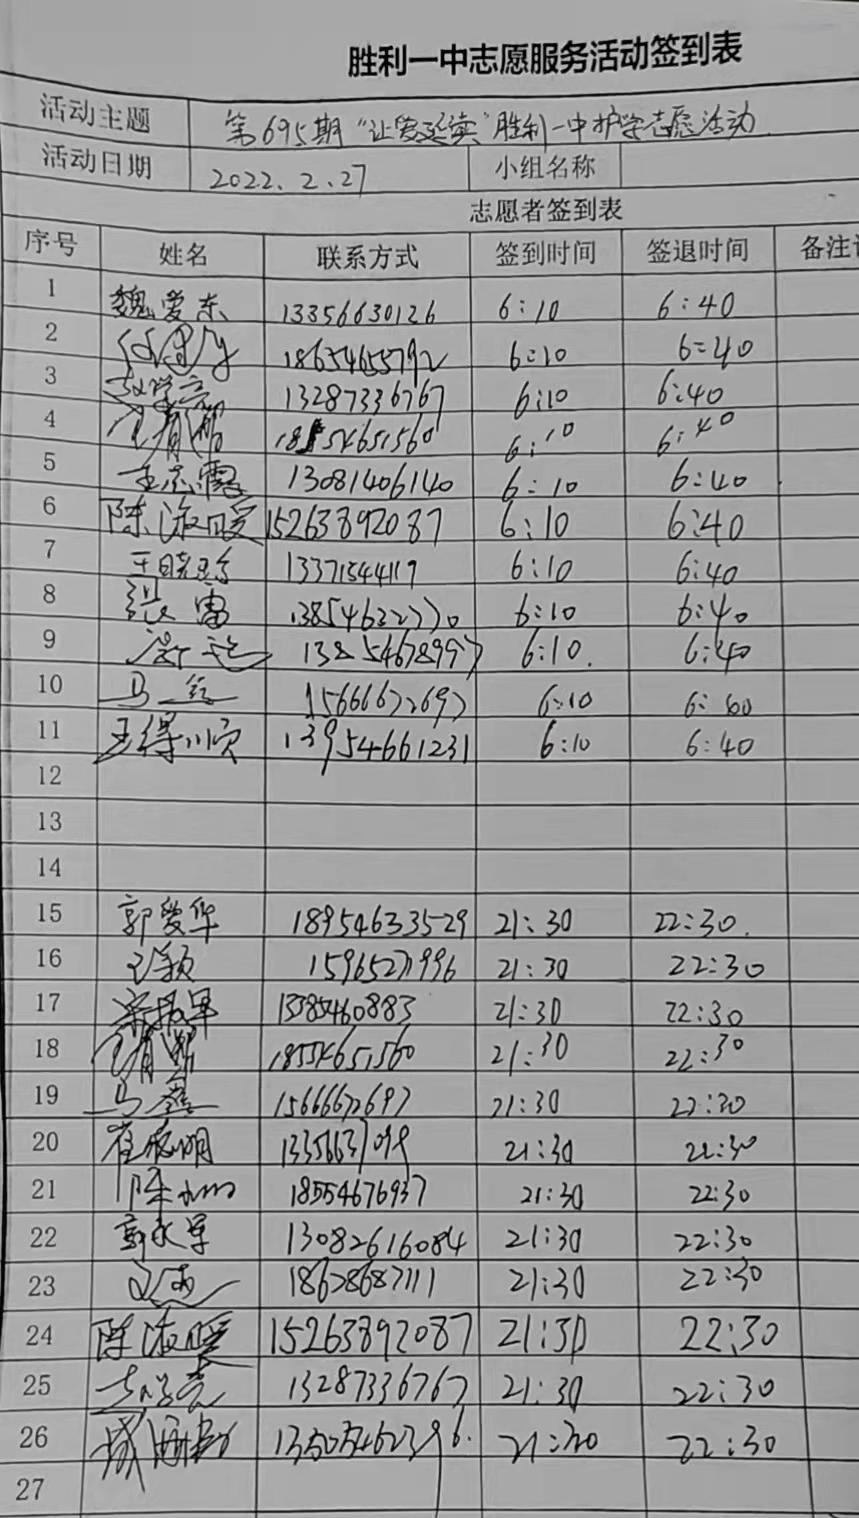 胜利一中志愿服务活动签到表
活动主题 第695期"让爱延续"胜利一中护学志愿活动
活动日期 2022.2.27 小组名称
志愿者签到表
序号 姓名 联系方式 签到时间 签退时间 备注
1 魏爱东 13356630126 6:10 6:40
2 18654655792 6:10 6:40
3 13287336767 6:10 6:40
4 6:10 6:40
5 王志霞 13081406140 6:10 6:40
6 陈淑暖 15263892087 6:10 6:40
7 王晓玲 13371544117 6:10 6:40
8 张雷 13854632770 6:10 6:40
9 13854678997 6:10. 6:40
10 马 15666672697 6:10
11 王得顺 13954661231 6:10 6:40
12
13
14
15 郭爱华 18954633529 21:30 22:30.
16 王颖 15965271996 21:30 22:30
17 13385460883 21:30 22:30
18 18554651560 21:30 22:30
19 马 15666672697 21:30 22:30
20 21:30 22:30
21 陈 18554676937 21:30 22:30
22 郭永军 13082616084 21:30 22:30
23 18628687111 21:30 22:30
24 陈淑暖 15263892087 21:30 22:30
25 13287336767 21:30 22:30
26 21:30 22:30
27